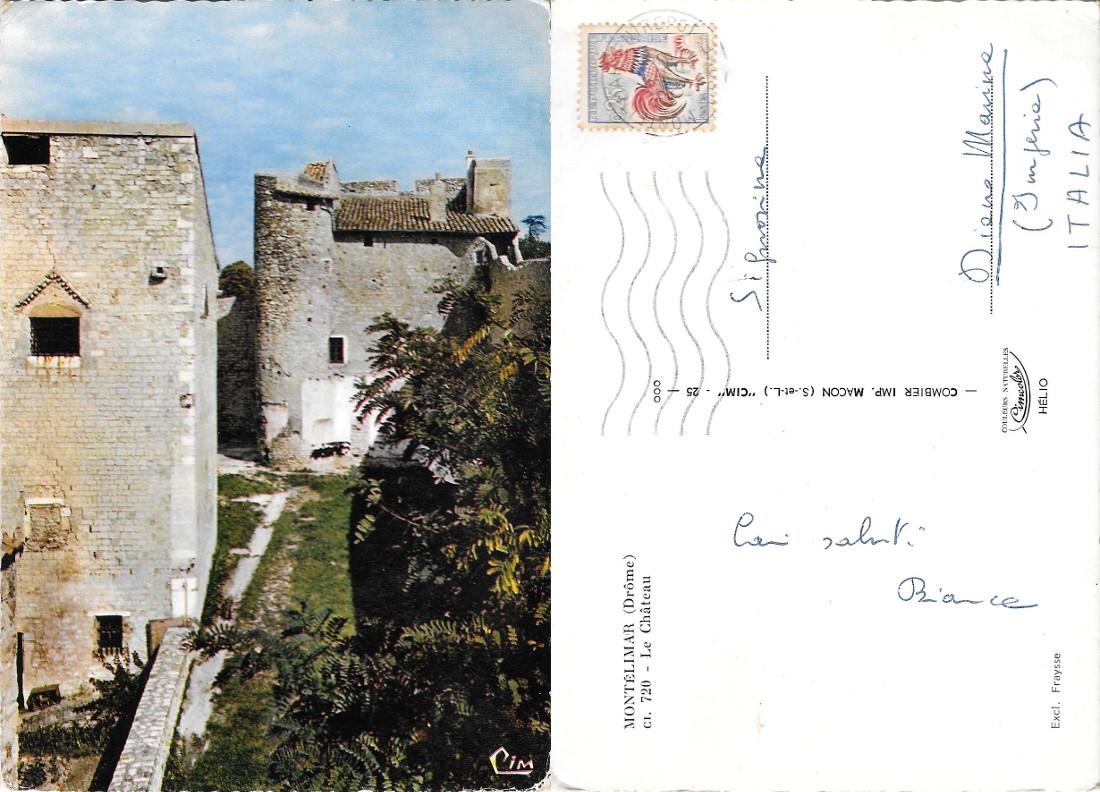 Cim
MONTÉLIMAR (Drôme)
Cl. 720 - Le Château
Cari saluti
Bianca
Excl. Fraysse
— COMBIER IMP. MACON (S.-et-L.) "CIM" - 25 —
COULEURS NATURELLES
Cimcolor
HÉLIO
Signorina
Diano Marina
(Imperia)
ITALIA